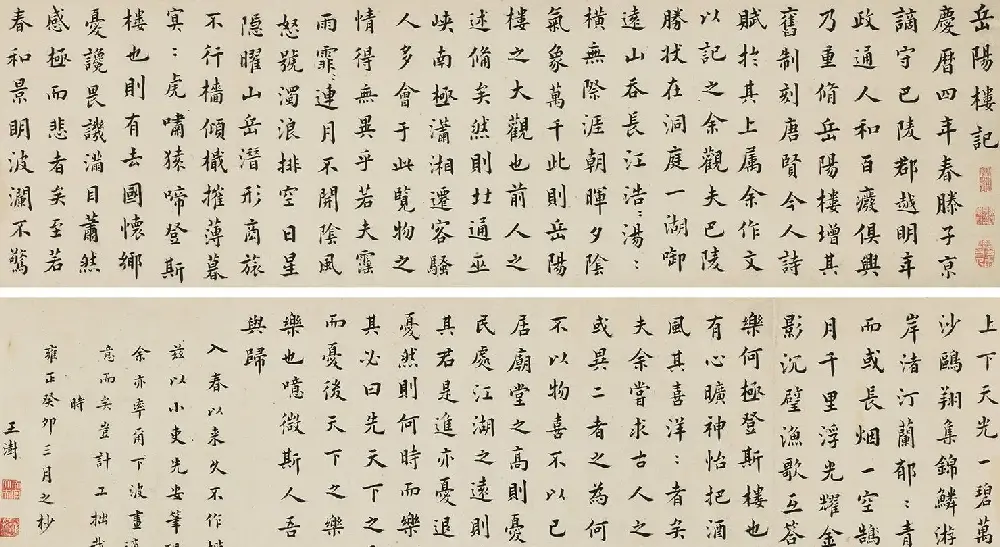 岳陽樓記
慶曆四年春滕子京
謫守巴陵郡越明年
政通人和百癈俱興
乃重脩岳陽樓增其
舊制刻唐賢今人詩
賦於其上属余作文
以記之余觀夫巴陵
勝状在洞庭一湖啣
遠山吞長江浩〻湯〻
橫無際涯朝暉夕陰
氣象萬千此則岳陽
樓之大觀也前人之
述俻矣然則北通巫
峽南極瀟湘遷客騷
人多會于此覽物之
情得無異乎若夫霪
雨霏〻連月不開陰風
怒號濁浪排空日星
隱曜山岳潛形商旅
不行檣傾檝摧薄暮
冥〻虎嘯猿啼登斯
樓也則有去國懷鄉
憂讒畏譏滿目蕭然
感極而悲者矣至若
春和景明波瀾不驚
上下天光一碧萬
沙鷗翔集錦鱗游
岸渚汀蘭郁〻青
而或長烟一空皓
月千里浮光耀金
影沉璧漁歌互答
樂何極登斯樓也
有心曠神怡把酒
風其喜洋〻者矣
夫余嘗求古人之
或異二者之為何
不以物喜不以己
居廟堂之高則憂
民處江湖之遠則
其君是進亦憂退
憂然則何時而樂
其必曰先天下之
而憂後天下之樂
樂也噫微斯人吾
與歸
入春以来久不作
茲以小史先安筆
余亦率爾下波畫
意而矣豈計工拙
時
雍正癸卯三月之杪
王澍